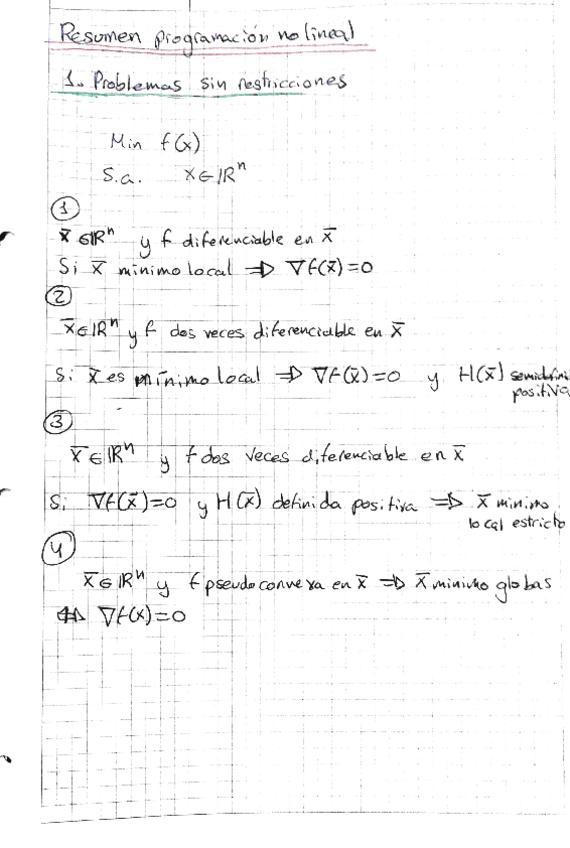 Resumen programación no lineal
1. Problemas sin restricciones
Min f(x)
S.a. x∈IRⁿ
①
x̄ ∈IRⁿ y f diferenciable en x̄
Si x̄ mínimo local ⇒ ∇f(x̄)=0
②
x̄∈IRⁿ y f dos veces diferenciable en x̄
Si x̄ es mínimo local ⇒ ∇f(x̄)=0 y H(x̄) semidefini
positiva
③
x̄∈IRⁿ y f dos veces diferenciable en x̄
Si ∇f(x̄)=0 y H(x̄) definida positiva ⇒ x̄ mínimo
local estricto
④
x̄∈IRⁿ y f pseudoconvexa en x̄ ⇒ x̄ minimo globas
⇔ ∇f(x)=0